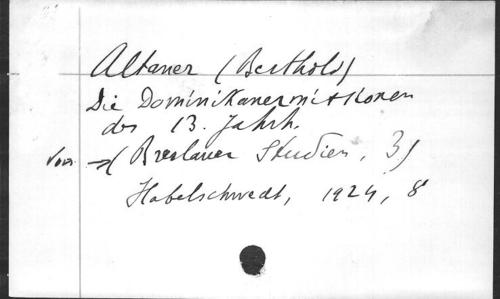 Altaner (Berthold)
Die Dominikanermissionen
des 13. Jahrh.
(Breslauer Studien, 3)
Habelschwedt, 1924, 8°